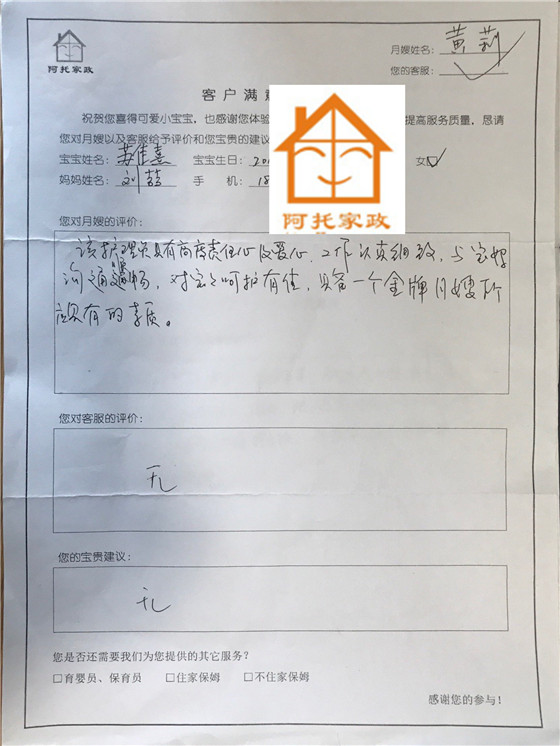 阿托家政
月嫂姓名: 黄莉
您的客服:
客户满
阿托家政
祝贺您喜得可爱小宝宝,也感谢您体验 提高服务质量,恳请
您对月嫂以及客服给予评价和您宝贵的建议
宝宝姓名: 苏佳熹 宝宝生日: 20 女
妈妈姓名: 刘 手 机: 18
您对月嫂的评价:
该护理员具有高度责任心及爱心,工作认真细致,与宝妈
沟通顺畅,对宝宝呵护有佳,具备一个金牌月嫂所
应具有的素质。
您对客服的评价:
无
您的宝贵建议:
无
您是否还需要我们为您提供的其它服务?
□育婴员、保育员 □住家保姆 □不住家保姆
感谢您的参与!